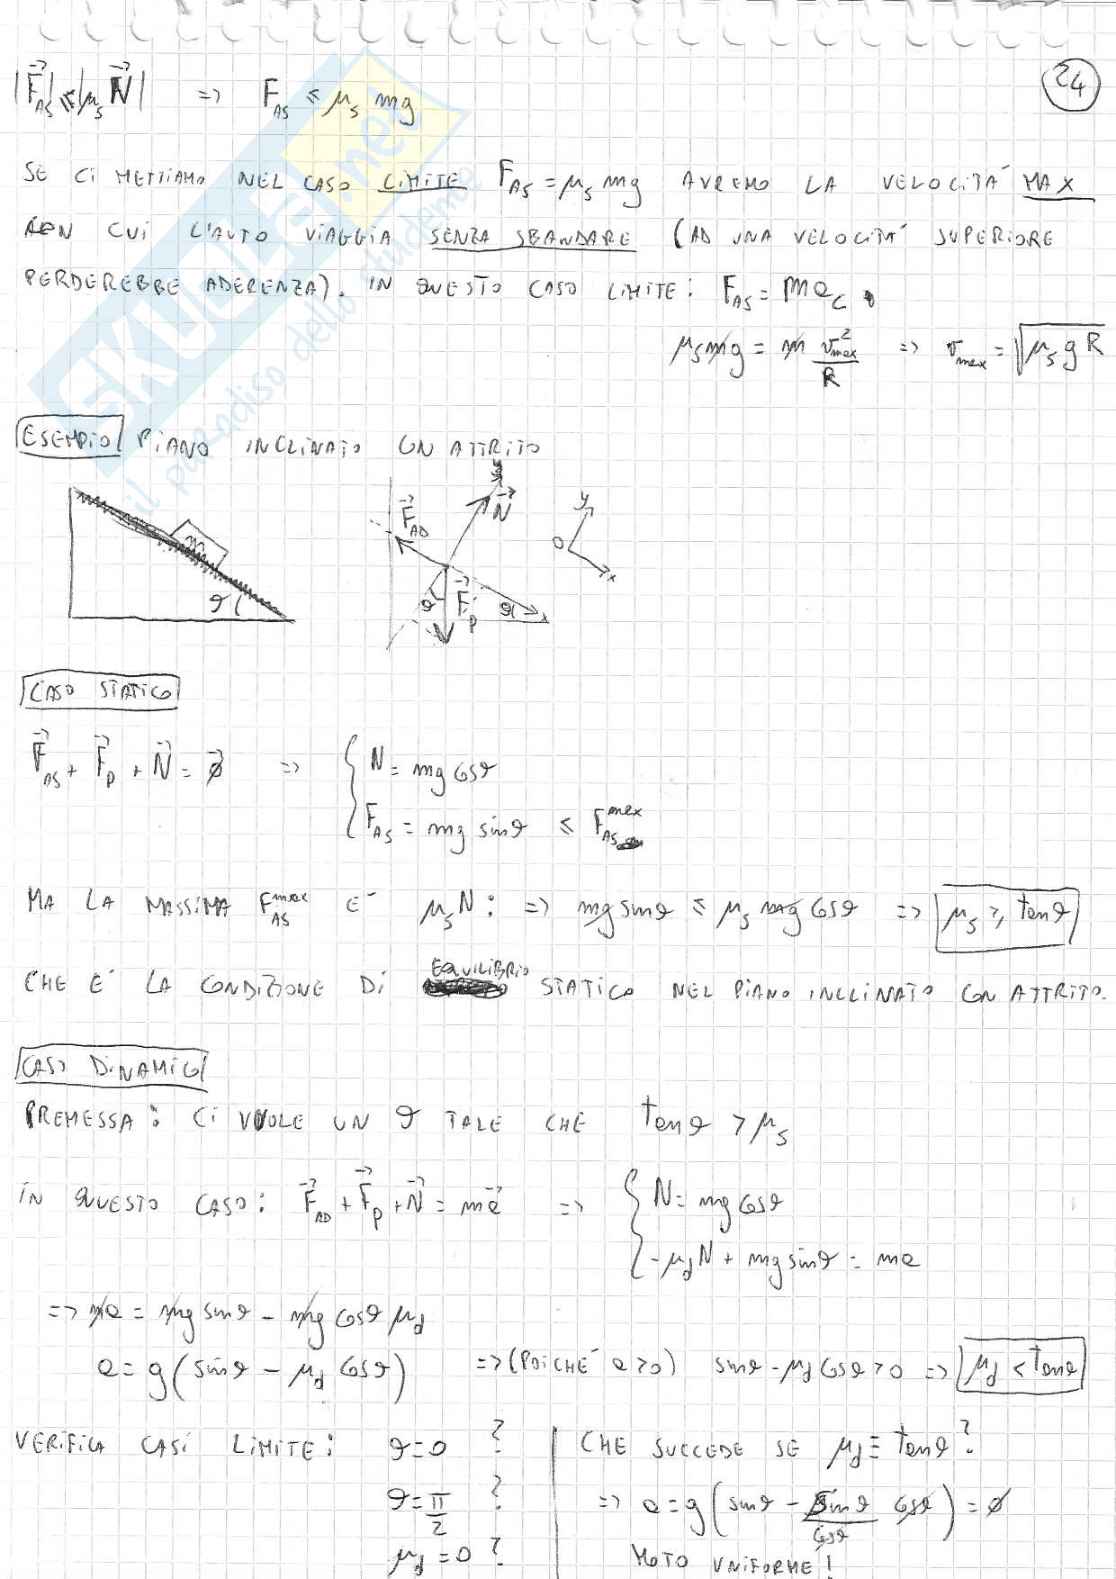 24
|F⃗_AS| ≤ |μ_s N⃗| => F_AS ≤ μ_s mg
SE CI METTIAMO NEL CASO LIMITE F_AS = μ_s mg AVREMO LA VELOCITA' MAX
CON CUI L'AUTO VIAGGIA SENZA SBANDARE (AD UNA VELOCITA' SUPERIORE
PERDEREBBE ADERENZA). IN QUESTO CASO LIMITE: F_AS = ma_c.
μ_s mg = m v²_max/R => v_max = √(μ_s g R)
ESEMPIO PIANO INCLINATO CON ATTRITO
m
ϑ
F⃗_AD
N⃗
y
ϑ
F⃗_p
ϑ
x
y
O
x
CASO STATICO
F⃗_AS + F⃗_p + N⃗ = 0⃗ => { N = mg cosϑ
F_AS = mg sinϑ ≤ F_AS^max
MA LA MASSIMA F_AS^max E' μ_s N: => mg sinϑ ≤ μ_s mg cosϑ => μ_s ≥ tanϑ
CHE E' LA CONDIZIONE DI EQUILIBRIO STATICO NEL PIANO INCLINATO CON ATTRITO.
CASO DINAMICO
PREMESSA: CI VUOLE UN ϑ TALE CHE tanϑ > μ_s
IN QUESTO CASO: F⃗_AD + F⃗_p + N⃗ = ma⃗ => { N = mg cosϑ
-μ_d N + mg sinϑ = ma
=> ma = mg sinϑ - mg cosϑ μ_d
a = g(sinϑ - μ_d cosϑ) => (POICHE' a>0) sinϑ - μ_d cosϑ > 0 => μ_d < tanϑ
VERIFICA CASI LIMITE: ϑ=0 ?
ϑ=π/2 ?
μ_d=0 ?
CHE SUCCEDE SE μ_d ≡ tanϑ ?
=> a = g(sinϑ - sinϑ/cosϑ cosϑ) = 0
MOTO UNIFORME!
SKUOLA.net
il paradiso dello studente